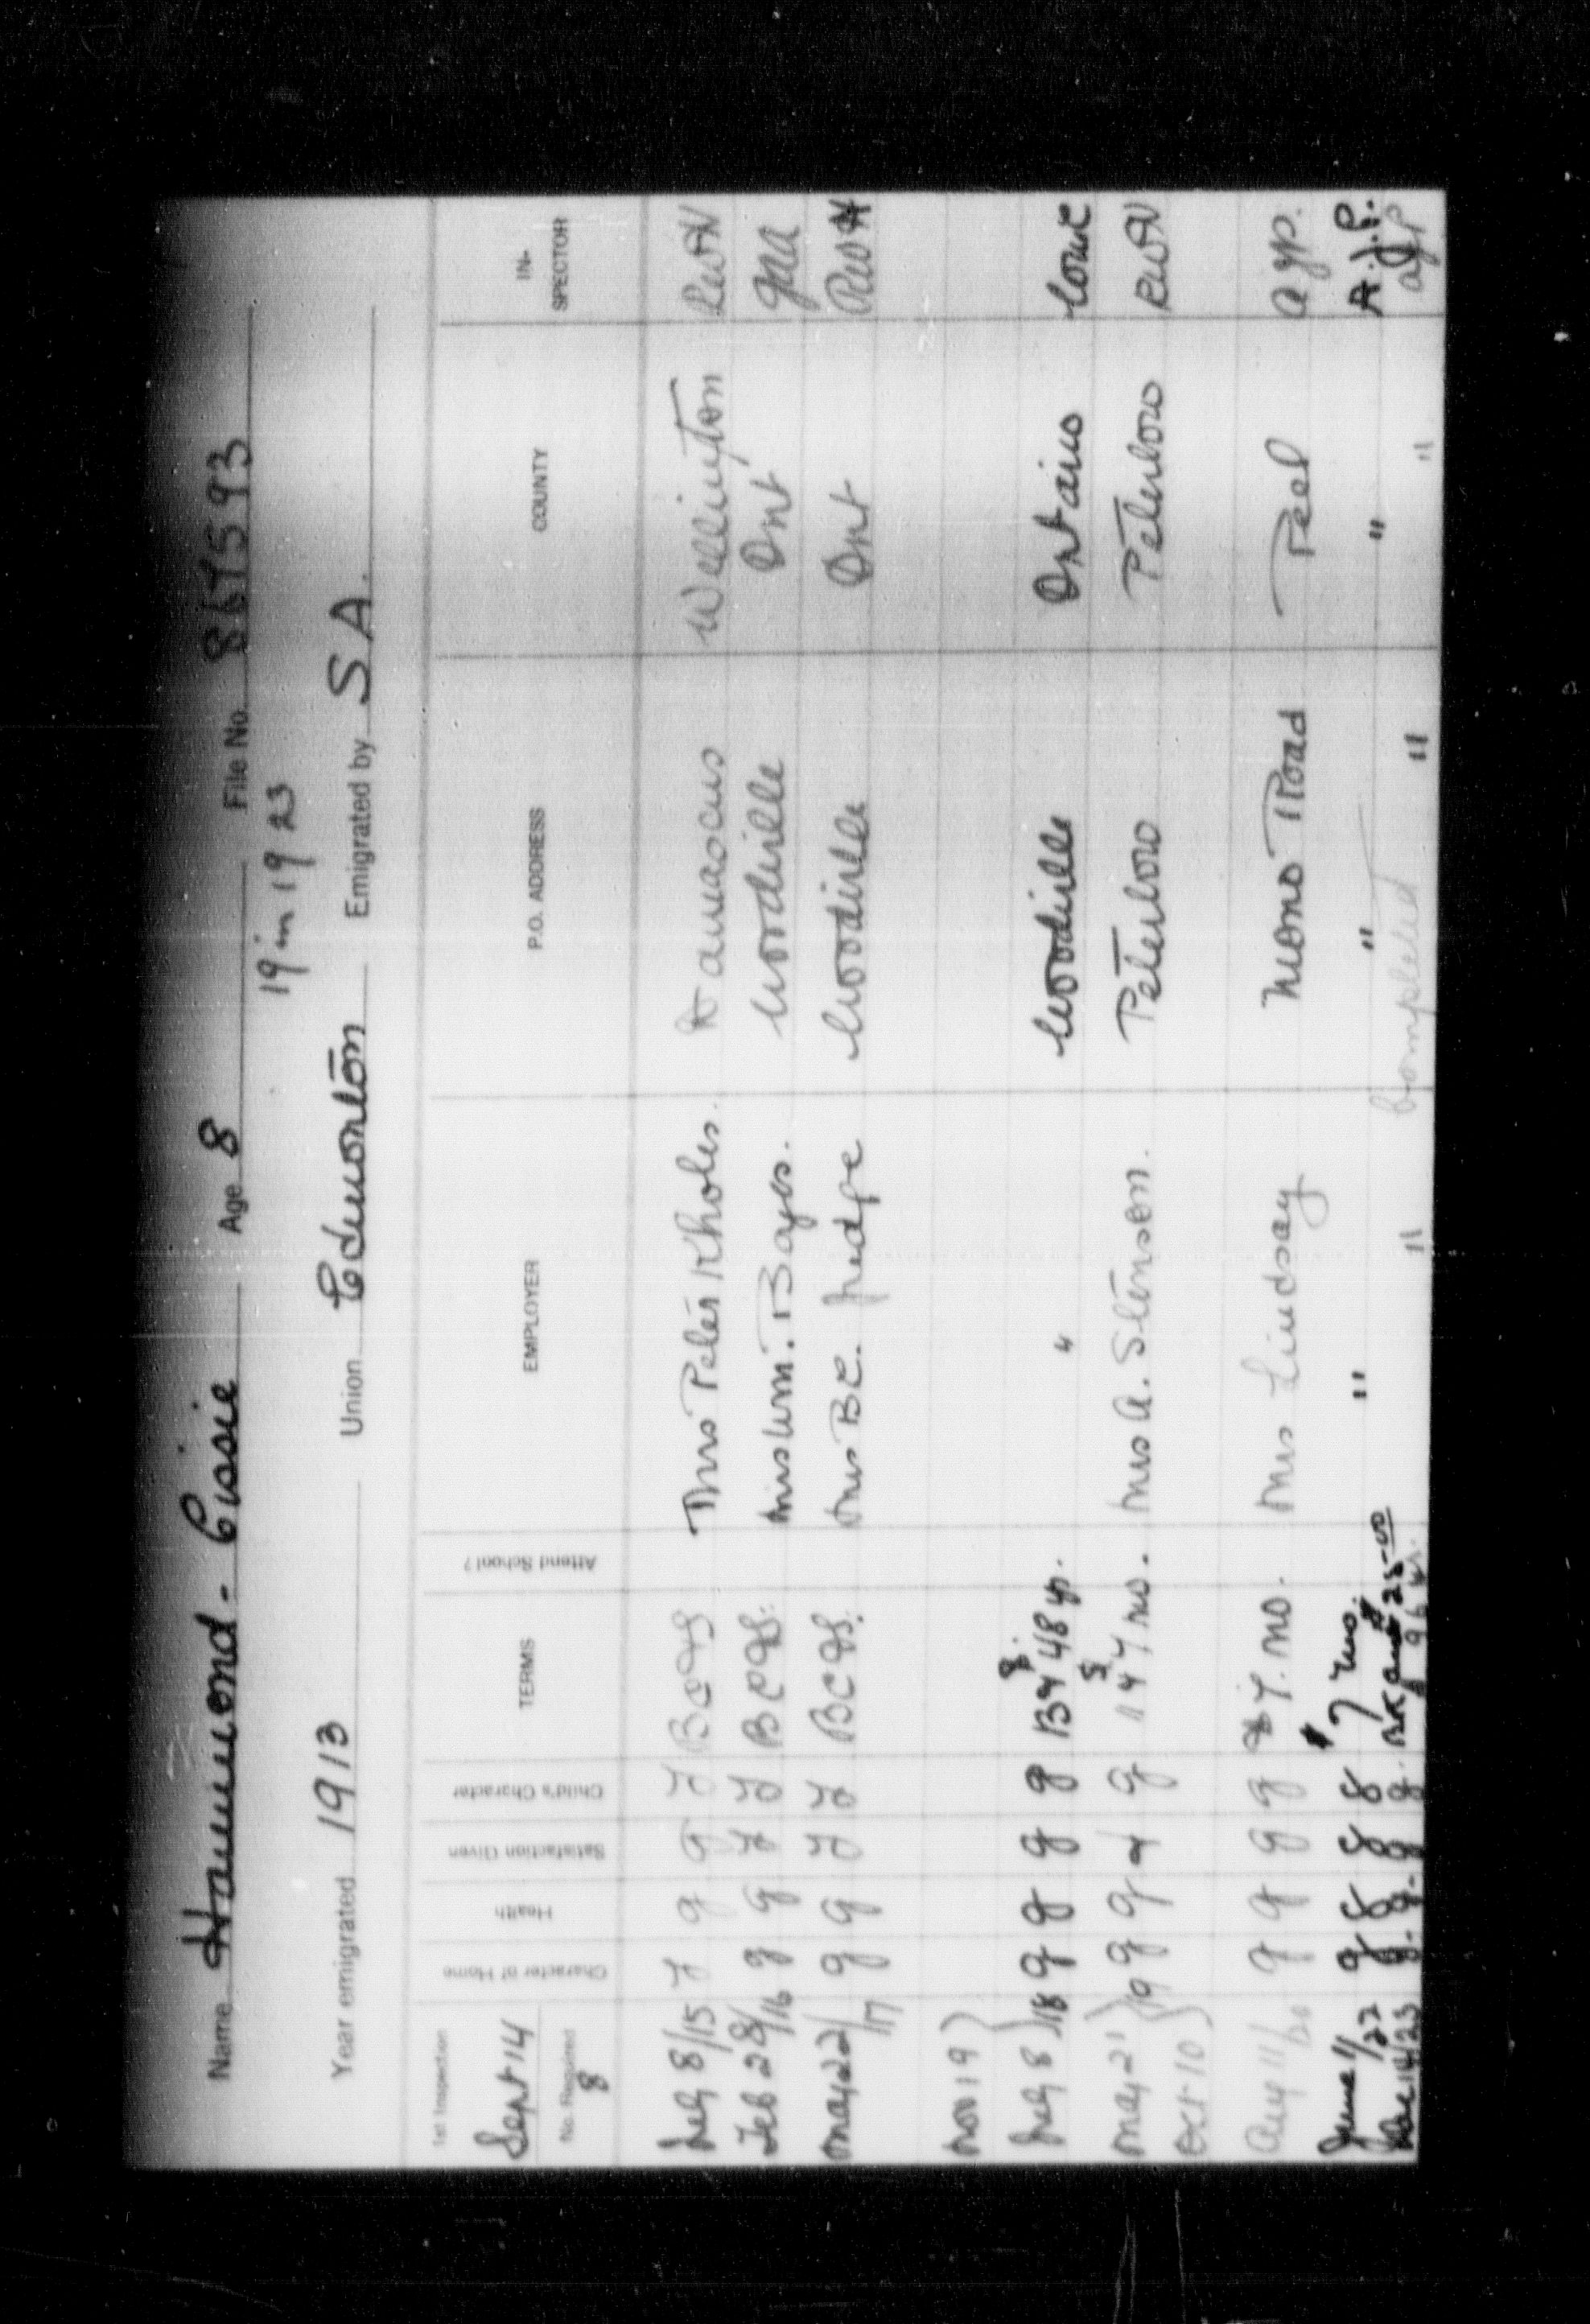 Name Hammond - Cissie Age 8 File No. 867593
19 in 1923
Year emigrated 1913 Union Edmonton Emigrated by S A.
1st Inspection Character of Home Health Satisfaction Given Child's Character TERMS Attend School? EMPLOYER P.O. ADDRESS COUNTY IN-SPECTOR
Sept 14
No. Required
8
July 8/15 F g g F BC&S Mrs Peter Rholes. Damascus Wellington
Feb 28/16 g g F F BC&S. Mrs Wm. Bayes. Woodville Ont
May 22/17 g g F F BC&S. Mrs BE. Woodville Ont
Nov 19
July 8 18 g g g g " Woodville Ontario
May 21 19 g g g 14 7 mo. Mrs A. Stinson. Peterboro Peterboro
Oct 10
Aug 11/20 g g g g 7. mo. Mrs Lindsay Mono Road Peel A.J.P.
June 11/22 g g g g 7 mo. " " " A.J.P.
14/23 g. g. g g. 25-00 " completed " " AJP